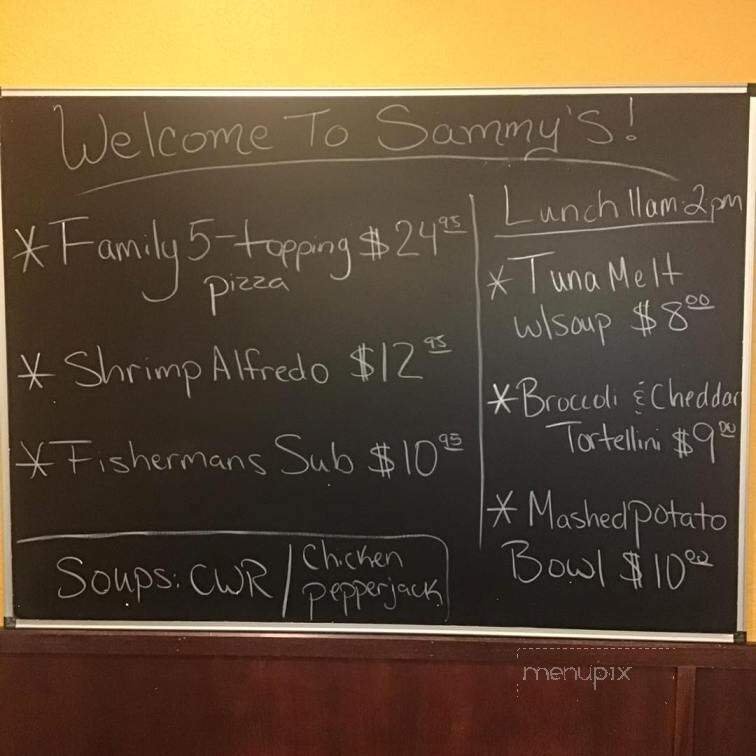 Welcome To Sammy's!
* Family 5-topping $24.95
pizza
* Shrimp Alfredo $12.95
* Fishermans Sub $10.95
Soups: CWR / Chicken
pepperjack
Lunch 11am-2pm
* Tuna Melt
w/soup $8.00
* Broccoli & Cheddar
Tortellini $9.00
* Mashed potato
Bowl $10.00
menupix